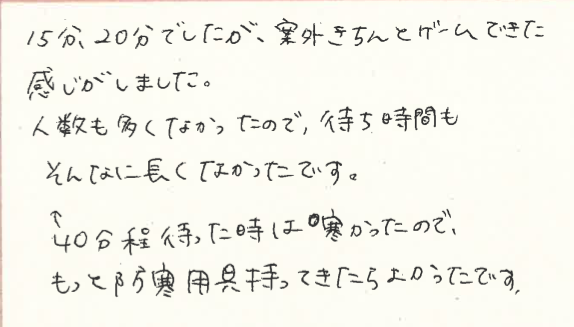 15分、20分でしたが、案外きちんとゲームできた
感じがしました。
人数も多くなかったので、待ち時間も
そんなに長くなかったです。
↑
40分程待った時は寒かったので、
もっと防寒用具持ってきたらよかったです。